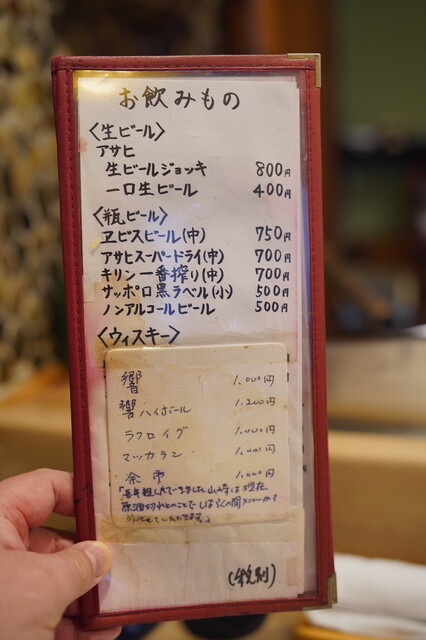 お飲みもの
〈生ビール〉
アサヒ
生ビールジョッキ 800円
一口生ビール 400円
〈瓶ビール〉
ヱビスビール(中) 750円
アサヒスーパードライ(中) 700円
キリン一番搾り(中) 700円
サッポロ黒ラベル(小) 500円
ノンアルコールビール 500円
〈ウィスキー〉
響 1,000円
響ハイボール 1,200円
ラフロイグ 1,000円
マッカラン 1,000円
余市 1,000円
山崎は現在
原酒切れとのことでしばらくの間メニューから
(税別)